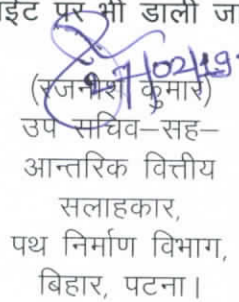 ईट पर भी डाली ज
27/02/19
(रजनीश कुमार)
उप सचिव–सह–
आन्तरिक वित्तीय
सलाहकार,
पथ निर्माण विभाग,
बिहार, पटना।